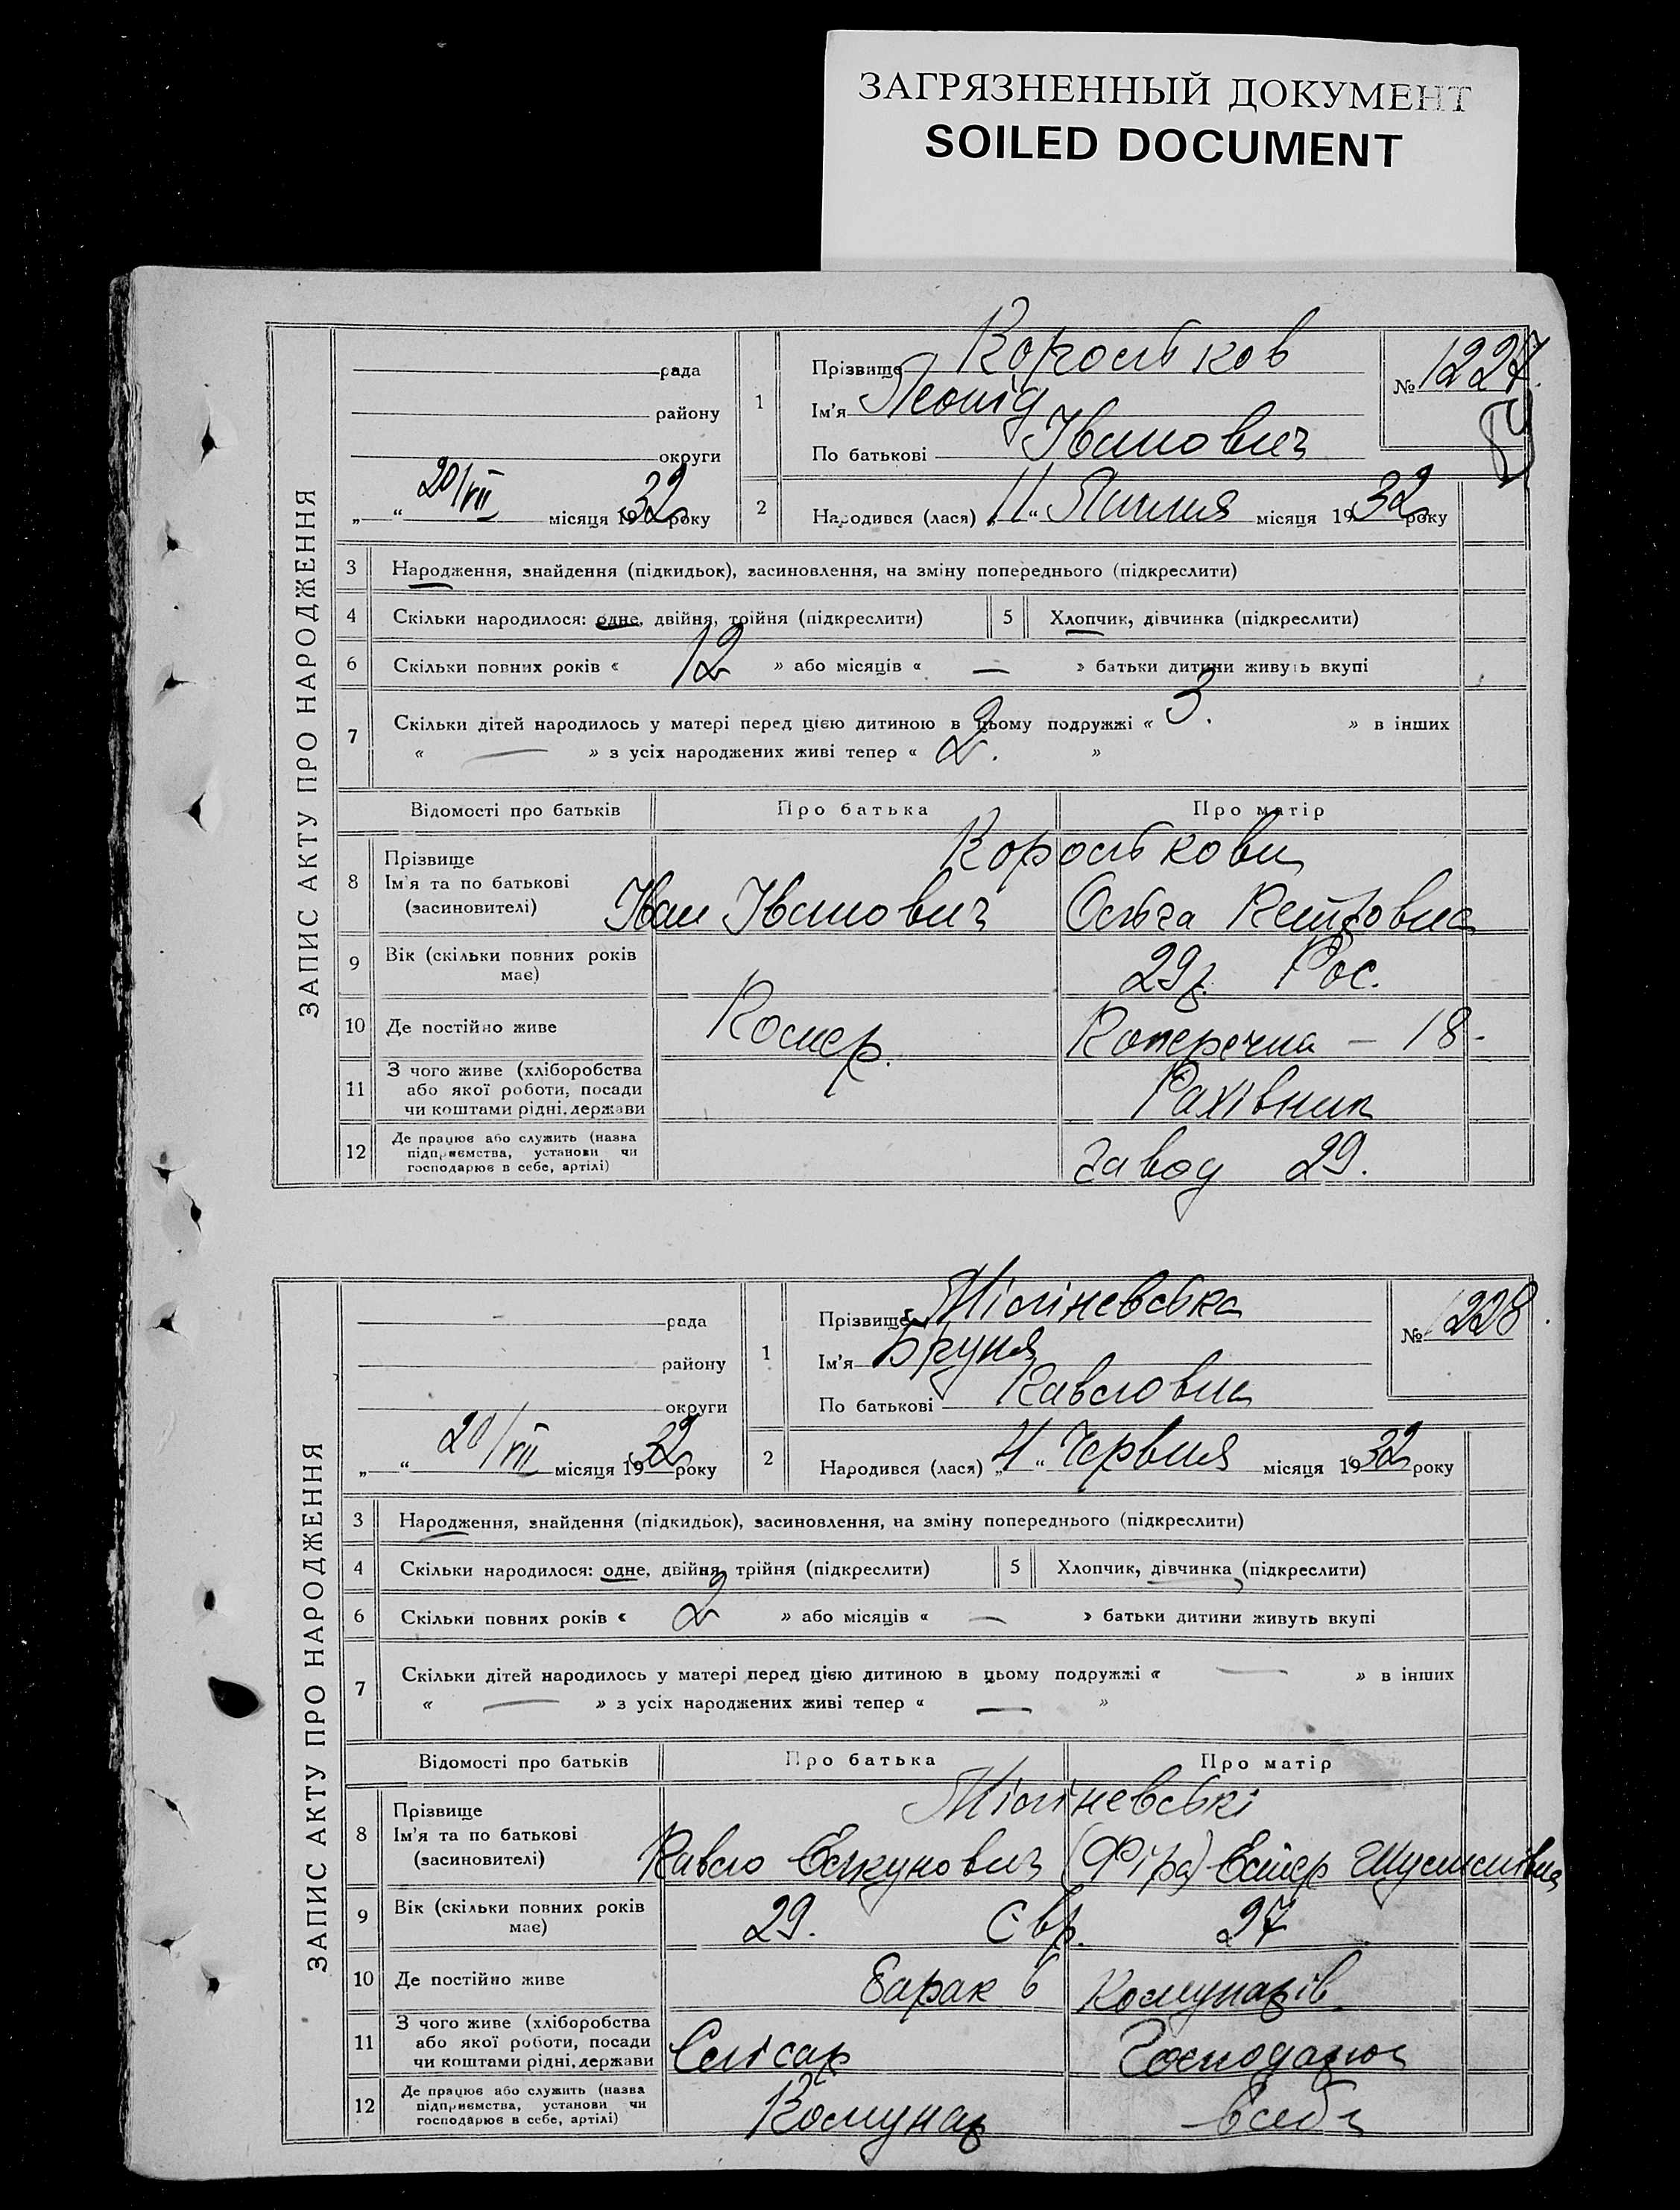 ЗАГРЯЗНЕННЫЙ ДОКУМЕНТ
SOILED DOCUMENT
ЗАПИС АКТУ ПРО НАРОДЖЕННЯ
рада
району
округи
20/VII місяця 1932 року
1
Прізвище Коростков
Ім'я Леонід
По батькові Іванович
№ 1227.
2
Народився (лася) „11“ Липня місяця 1932 року
3 Народження, знайдення (підкидьок), засиновлення, на зміну попереднього (підкреслити)
4 Скільки народилося: одне, двійня, трійня (підкреслити) 5 Хлопчик, дівчинка (підкреслити)
6 Скільки повних років « 12 » або місяців « — » батьки дитини живуть вкупі
7 Скільки дітей народилось у матері перед цією дитиною в цьому подружжі « 3. » в інших
« — » з усіх народжених живі тепер « 2. »
Відомості про батьків Про батька Про матір
8 Прізвище Коросткови
Ім'я та по батькові
(засиновителі) Іван Іванович Ольга Петровна
9 Вік (скільки повних років має) 29р. Рос.
10 Де постійно живе Помер. Поперечна — 18 -
11 З чого живе (хліборобства
або якої роботи, посади
чи коштами рідні, держави Рахівник
12 Де працює або служить (назва
підприємства, установи чи
господарює в себе, артілі) Завод 29.
ЗАПИС АКТУ ПРО НАРОДЖЕННЯ
рада
району
округи
20/VII місяця 1932 року
1
Прізвище Міліневська
Ім'я Бруня
По батькові Павловна
№ 1228.
2
Народився (лася) Червня місяця 1932 року
3 Народження, знайдення (підкидьок), засиновлення, на зміну попереднього (підкреслити)
4 Скільки народилося: одне, двійня, трійня (підкреслити) 5 Хлопчик, дівчинка (підкреслити)
6 Скільки повних років « 2 » або місяців « — » батьки дитини живуть вкупі
7 Скільки дітей народилось у матері перед цією дитиною в цьому подружжі « — » в інших
« — » з усіх народжених живі тепер « — »
Відомості про батьків Про батька Про матір
8 Прізвище Міліневські
Ім'я та по батькові
(засиновителі) Павло (Фіра) Естер
9 Вік (скільки повних років має) 29. Євр. 27
10 Де постійно живе Барак 6 Комунарів.
11 З чого живе (хліборобства
або якої роботи, посади
чи коштами рідні, держави Слісар
12 Де працює або служить (назва
підприємства, установи чи
господарює в себе, артілі) Комунар